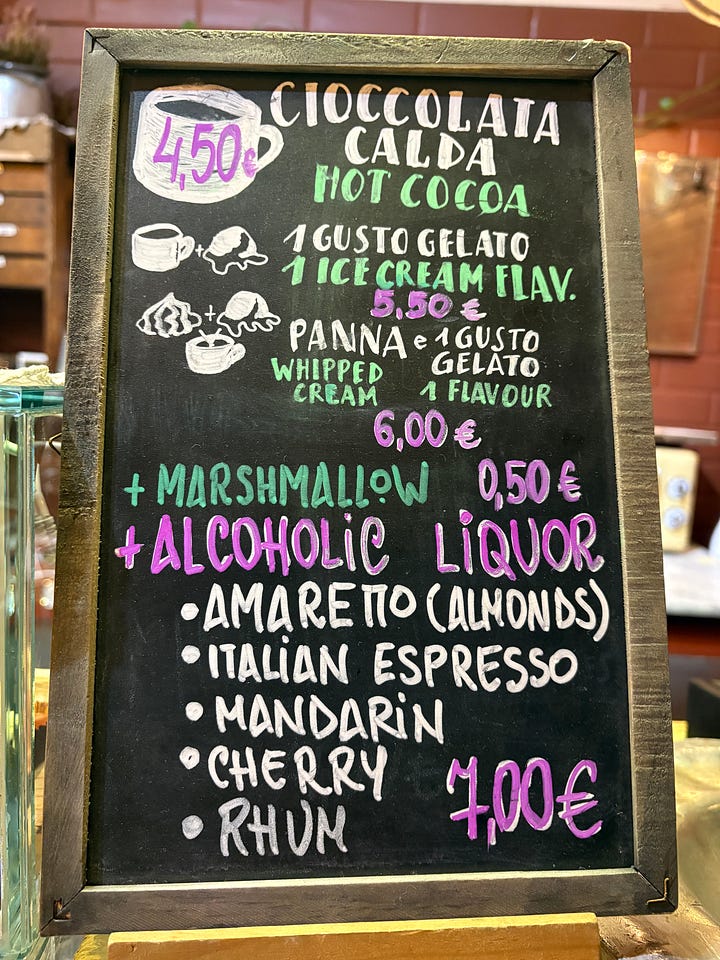 CIOCCOLATA
4,50€
CALDA
HOT COCOA
+ 1 GUSTO GELATO
1 ICE CREAM FLAV.
5,50 €
+
PANNA e 1 GUSTO
GELATO
WHIPPED
CREAM
1 FLAVOUR
6,00 €
+ MARSHMALLOW 0,50 €
+ALCOHOLIC LIQUOR
• AMARETTO (ALMONDS)
• ITALIAN ESPRESSO
• MANDARIN
• CHERRY
7,00€
• RHUM